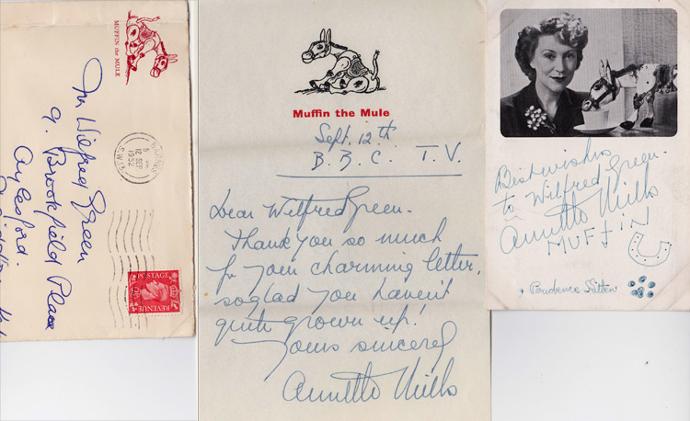 MUFFIN the MULE
Mr Wilfred Green
9. Brookfield Place
Aylesford.
12 SEP
1952
S.W.1
POSTAGE
REVENUE
Muffin the Mule
Sept. 12th
B.B.C. T.V.
Dear Wilfred Green.
Thank you so much
for your charming letter,
so glad you haven't
quite grown up!
Yours sincerely
Annette Mills
Best wishes
to Wilfred Green.
Annette Mills
MUFFIN
Prudence Kitten